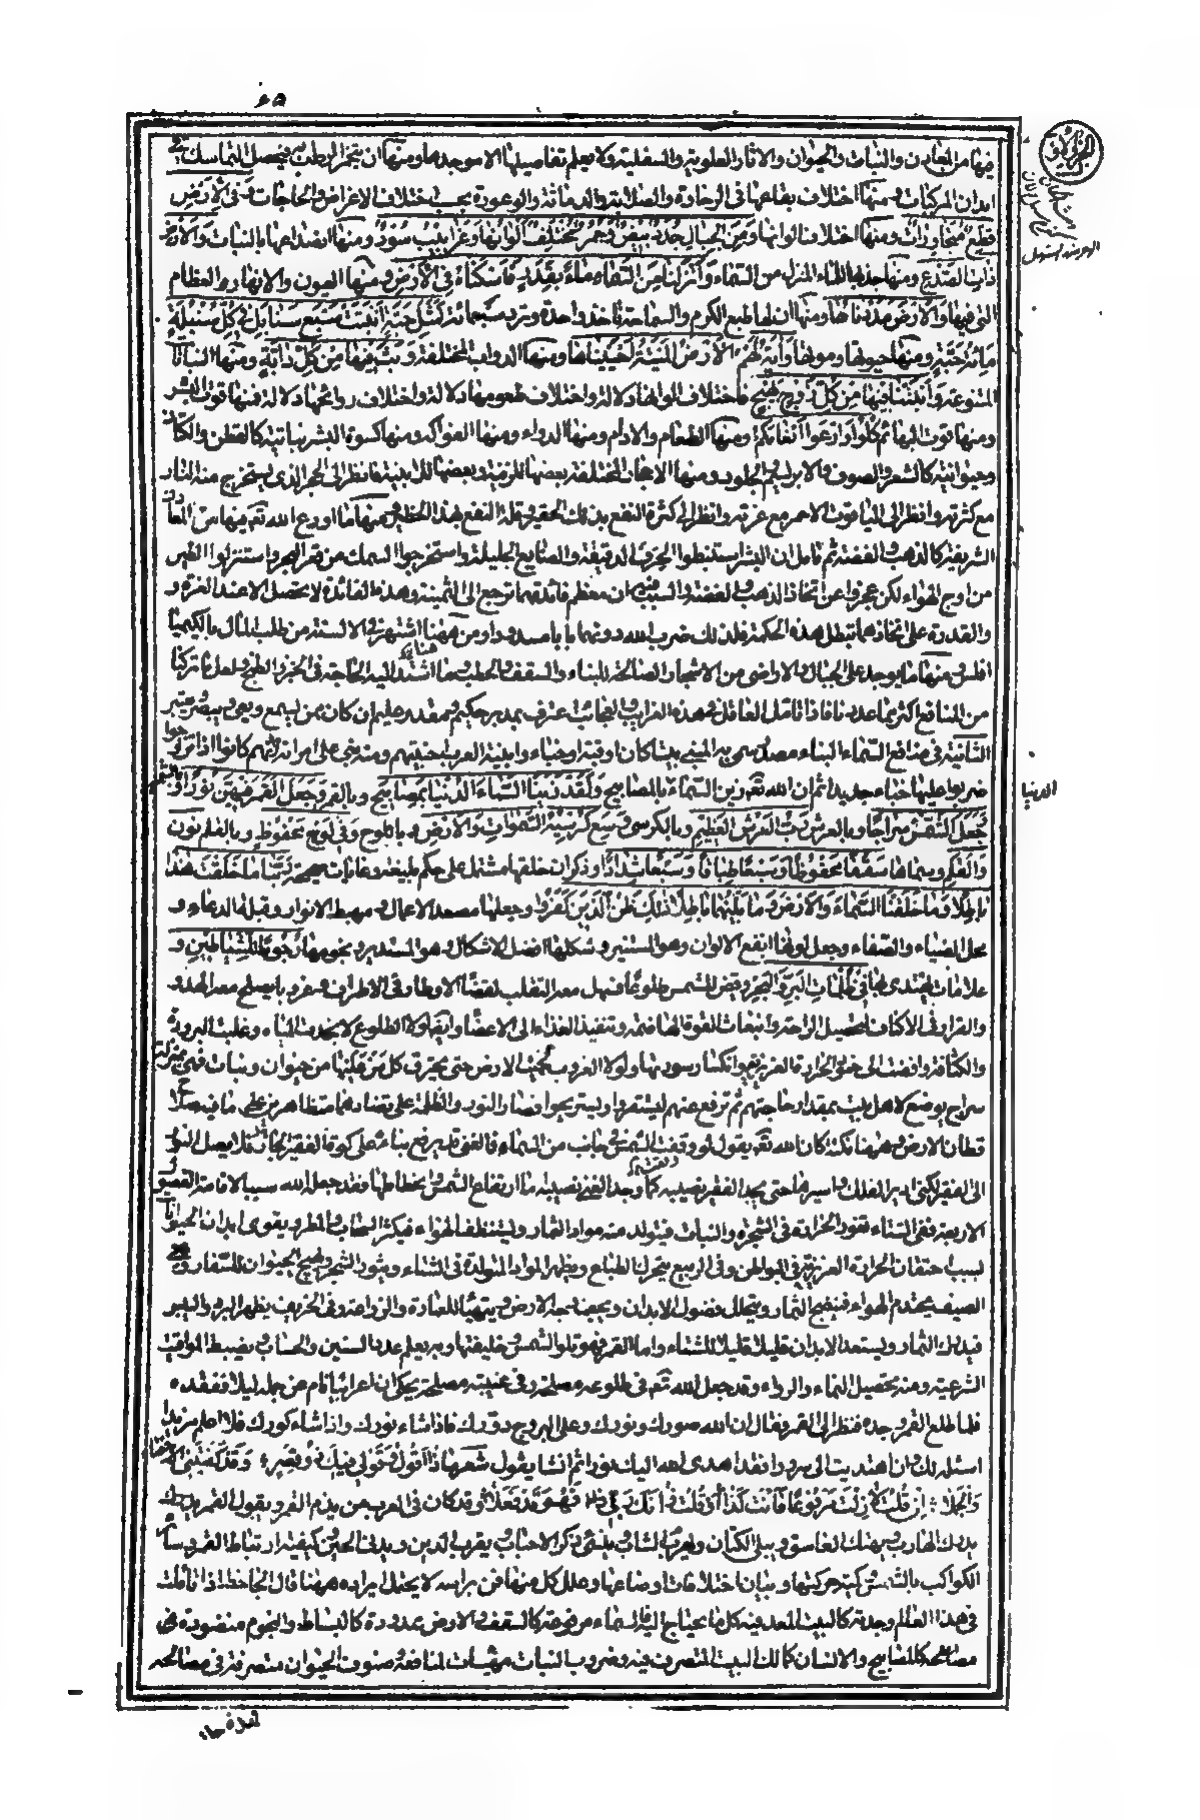 فيها من المعادن والنبات والحيوان والاثار العلوية والسفلية ولا يعلم تفاصيلها الا موجدها ومنها ان يتخمر الرطب به فيحصل التماسك في
ابدان المركبات ومنها اختلاف بقاعها في الرخاوة والصلابة والدماثة والوعورة بحسب اختلاف الاغراض والحاجات وَفِي الْاَرْضِ
قِطَعٌ مُتَجَاوِرَاتٌ ومنها اختلاف الوانها وَمِنَ الْجِبَالِ جُدَدٌ بِيضٌ وَحُمْرٌ مُخْتَلِفٌ اَلْوَانُهَا وَغَرَابِيبُ سُودٌ ومنها انصداعها بالنبات وَالْاَرْضِ
ذَاتِ الصَّدْعِ ومنها جذبها للماء المنزل من السماء وَاَنْزَلْنَا مِنَ السَّمَاءِ مَاءً بِقَدَرٍ فَاَسْكَنَّاهُ فِي الْاَرْضِ ومنها العيون والانهار والعظام
التي فيها وَالْاَرْضَ مَدَدْنَاهَا ومنها ان لها طبع الكرم والسماحة تاخذ واحدة وترد سبعمائة كَمَثَلِ حَبَّةٍ اَنْبَتَتْ سَبْعَ سَنَابِلَ فِي كُلِّ سُنْبُلَةٍ
مِائَةُ حَبَّةٍ ومنها حيوتها وموتها وَاٰيَةٌ لَهُمُ الْاَرْضُ الْمَيْتَةُ اَحْيَيْنَاهَا ومنها الدواب المختلفة وَبَثَّ فِيهَا مِنْ كُلِّ دَابَّةٍ ومنها النباتات
المتنوعة وَاَنْبَتْنَا فِيهَا مِنْ كُلِّ زَوْجٍ بَهِيجٍ فاختلاف الوانها دلالة واختلاف طعومها دلالة واختلاف روائحها دلالة فمنها قوت البشر
ومنها قوت البهائم كُلُوا وَارْعَوْا اَنْعَامَكُمْ ومنها الطعام والادام ومنها الدواء ومنها الفواكه ومنها كسوة البشر نباتية كالقطن والكتان
وحيوانية كالشعر والصوف والابريسم والجلود ومنها الاحجار المختلفة بعضها للزينة وبعضها للابنية فانظر الى الحجر الذي يستخرج منه النار
مع كثرته وانظر الى الياقوت الاحمر مع عزته وانظر الى كثرة النفع بذلك الحقير وقلة النفع بهذا الخطير ومنها ما اودع الله تع فيها من المعادن
الشريفة كالذهب والفضة ثم تامل ان البشر استنبطوا الحرف الدقيقة والصنايع الجليلة واستخرجوا السمك من قعر البحر واستنزلوا الطير
من اوج الهواء لكن عجزوا عن اتخاذ الذهب والفضة والسبب فيه ان معظم فائدتهما ترجع الى الثمينة وهذه الفائدة لا تحصل الا عند العزة و
والقدرة على اتخاذهما تبطل هذه الحكمة فلذلك ضرب الله دونهما بابا مسدودا ومن ههنا اشتهر في الالسنة من طلب المال بالكيميا
افلس ومنها ما يوجد على الجبال والاراضي من الاشجار الصالحة للبناء والسقف والحطب وما اشتد اليه الحاجة في الخبز والطبخ ولعل ما تركنا
من المنافع اكثر مما عددنا فاذا تامل العاقل في هذه الغرايب والعجائب عرف بمدبر حكيم ومقدر عليم ان كان ممن يسمع ويعي ويبصر ويعتبر
الثانية في منافع السماء البناء مصدر سمي به المبني بيتا كان او قبة او خباء وابنية العرب اخبيتهم ومنه بنى على امراته لانهم كانوا اذا تزوجوا
ضربوا عليها خباء جديدا ثم ان الله تع زين السماء بالمصابيح وَلَقَدْ زَيَّنَّا السَّمَاءَ الدُّنْيَا بِمَصَابِيحَ وبالقمر وَجَعَلَ الْقَمَرَ فِيهِنَّ نُورًا وبالشمس
وَجَعَلَ الشَّمْسَ سِرَاجًا وبالعرش رَبُّ الْعَرْشِ الْعَظِيمِ وبالكرسي وَسِعَ كُرْسِيُّهُ السَّمٰوَاتِ وَالْاَرْضَ وباللوح فِي لَوْحٍ مَحْفُوظٍ وبالقلم نون
وَالْقَلَمِ وسماها سَقْفًا مَحْفُوظًا وَسَبْعًا طِبَاقًا وَسَبْعًا شِدَادًا وذكر ان خلقها مشتمل على حكم بليغة وغايات صحيحة رَبَّنَا مَا خَلَقْتَ هٰذَا
بَاطِلًا وَمَا خَلَقْنَا السَّمَاءَ وَالْاَرْضَ وَمَا بَيْنَهُمَا بَاطِلًا ذٰلِكَ ظَنُّ الَّذِينَ كَفَرُوا وجعلها مصعد الاعمال ومهبط الانوار وقبلة الدعاء و
محل الضياء والصفاء وجعل لونها انفع الالوان وهو المستنير وشكلها افضل الاشكال وهو المستدير ونجومها رُجُومًا لِلشَّيَاطِينِ و
علامات يهتدى بها فِي ظُلُمَاتِ الْبَرِّ وَالْبَحْرِ وقيض للشمس طلوعا فسهل معه التقلب لقضاء الاوطار في الاطراف وغروبا يصلح معه الهدو
والقرار في الاكناف لتحصيل الراحة وانبعاث القوة الهاضمة وتنفيذ الغذاء الى الاعضاء وايضا لولا الطلوع لانجمدت المياه وغلبت البرودة
والكثافة وافضت الى خمود الحرارة الغريزية وانكسار سورتها ولولا الغروب لحميت الارض حتى يحترق كل من عليها من حيوان ونبات فهي بمنزلة
سراج يوضع لاهل بيت بمقدار حاجتهم ثم ترفع عنهم ليستقروا ويستريحوا فصار النور والظلمة على تضادهما متظاهرين على ما فيه صلاح
قطان الارض وههنا نكتة كان الله تع يقول لو وقفت الشمس في جانب من السماء فالغني قد يرفع بناءه على كوة الفقير الجار فلا يصل النور
الى الفقير لكني ادير الفلك واسيرها حتى يجد الفقير نصيبه كما وجد الغني نصيبه واما ارتفاع الشمس وانحطاطها فقد جعل الله سببا لاقامة الفصول
الاربعة ففي الشتاء تغور الحرارة في الشجر والنبات فيتولد منه مواد الثمار ويستنظف الهواء فيكثر السحاب والمطر ويقوى ابدان الحيوانات
بسبب احتقان الحرارة الغريزية في البواطن وفي الربيع يتحرك الطبايع ويظهر المواد المتولدة في الشتاء ويتنور الشجر ويهيج الحيوان للسفاد وفي
الصيف يحتدم الهواء فينضج الثمار ويتحلل فضول الابدان ويجف وجه الارض ويتهيا للعمارة والزراعة وفي الخريف يظهر البرد واليبس
فيدرك الثمار ويستعد الابدان قليلا قليلا للشتاء واما القمر فهو تلو الشمس وخليفتها وبه يعلم عدد السنين والحساب ويضبط المواقيت
الشرعية ومنه يحصل النماء والرواء وقد جعل الله تع في طلوعه مصلحة وفي غيبته مصلحة يحكى ان اعرابيا نام عن جمله ليلا ففقده
فلما طلع القمر وجده فنظر الى القمر وقال ان الله صورك ونورك وعلى البروج دورك فاذا شاء نورك واذا شاء كورك فلا اعلم مزيدا
اسئله لك ولئن اهديت الى سرورا فقد اهدى الله اليك نورا ثم انشا يقول شعر مَاذَا اَقُولُ وَقَوْلِي فِيكَ ذُو قِصَرٍ وَقَدْ كَفَيْتَنِي التفصيل
وَالْجُمَلَا اِنْ قُلْتُ لَا زِلْتَ مَرْفُوعًا فَاَنْتَ كَذَا اَوْ قُلْتُ زَانَكَ رَبِّي فَهُوَ قَدْ فَعَلَا وقد كان في العرب من يذم القمر ويقول القمر يدرك
الهارب ويهتك العاشق ويبلي الكتان ويهرم الشاب وينسي ذكر الاحباب ويقرب الدين ويدني الحين كيفية ارتباط القمر وسائر
الكواكب بالشمس كمية حركتها وبيان اختلافات اوضاعها وعلل كل منها فن براسه لا يحتمل ايراده ههنا قال الجاحظ اذا تاملت
في هذا العالم وجدته كالبيت المعد فيه كل ما يحتاج اليه فالسماء مرفوعة كالسقف والارض ممدودة كالبساط والنجوم منضودة
كالمصابيح والانسان كمالك البيت المتصرف فيه وضروب النبات مهيئات لمنافعه وصنوف الحيوان متصرفة في مصالحه